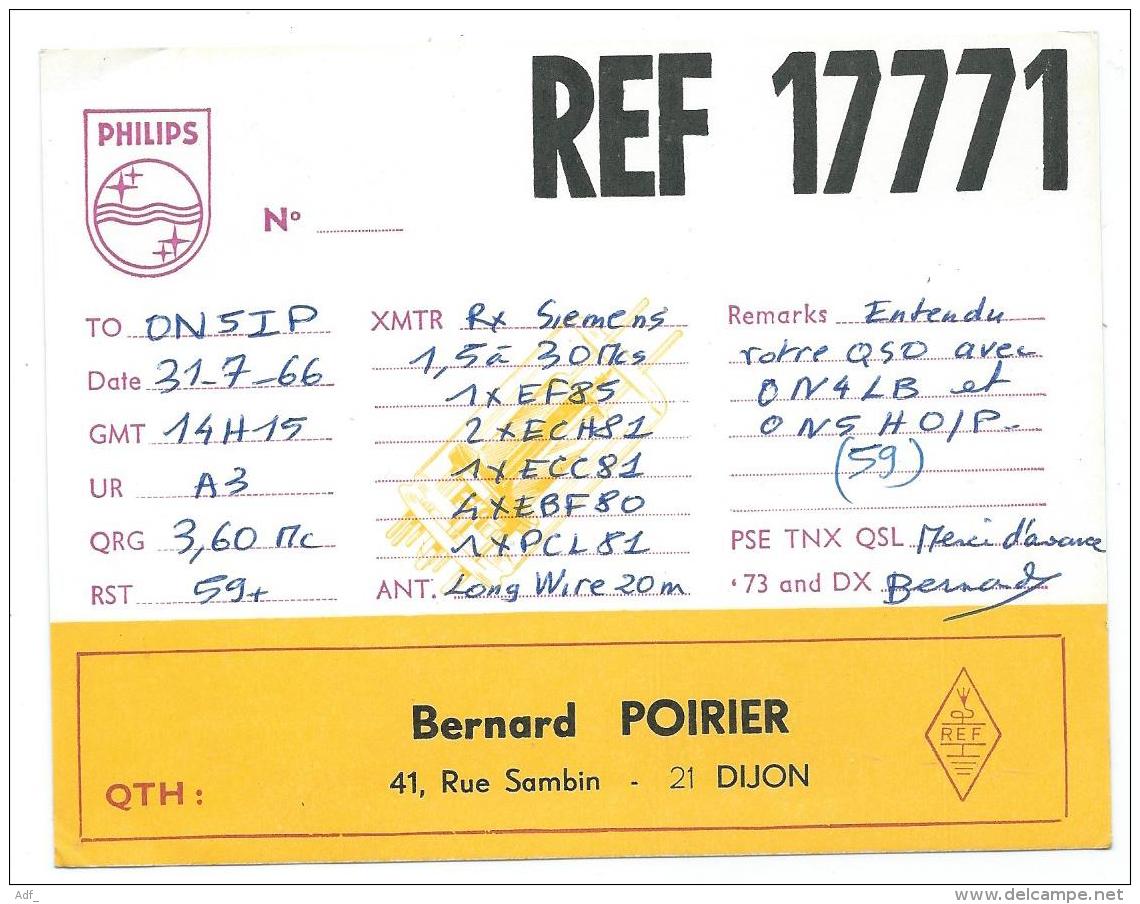 REF 17771
PHILIPS
Nº
TO ON5IP
Date 31-7-66
GMT 14H15
UR A3
QRG 3,60 Mc
RST 59+
XMTR Rx Siemens
1,5 à 30Mcs
1xEF85
2xECH81
1xECC81
4xEBF80
1xPCL81
ANT. Long Wire 20m
Remarks Entendu
votre QSO avec
ON4LB et
ON5HO/P-
(59)
PSE TNX QSL Merci d'avance
'73 and DX Bernard
Bernard POIRIER
41, Rue Sambin - 21 DIJON
QTH :
REF
Adf_
www.delcampe.net